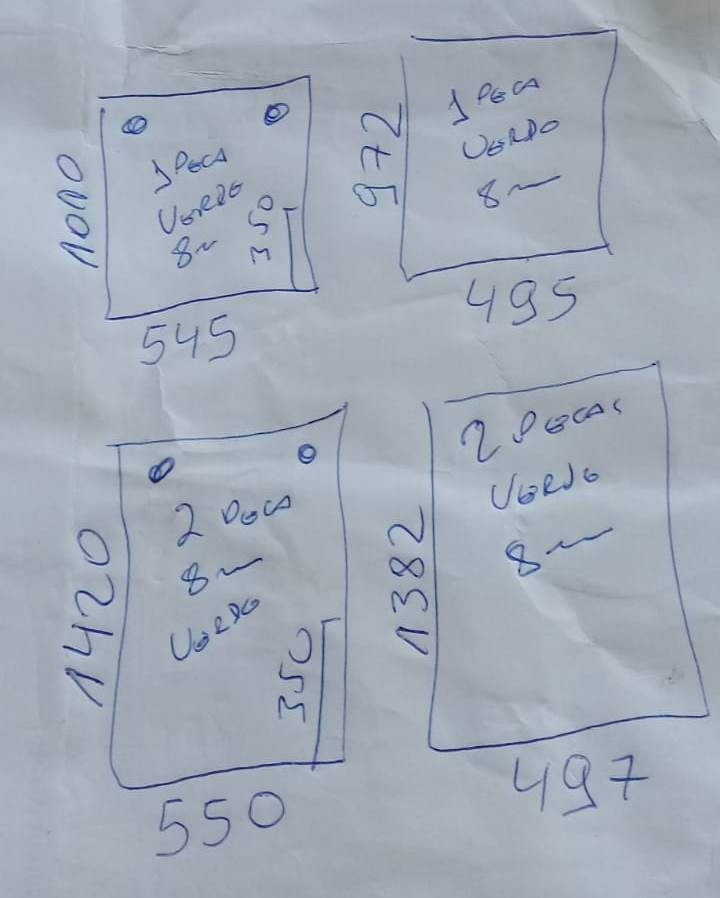 1010
1 PECA
VERDE
8m
350
545
972
1 PECA
VERDE
8m
495
1420
2 PECA
8m
VERDE
350
550
1382
2 PECAS
VERDE
8m
497